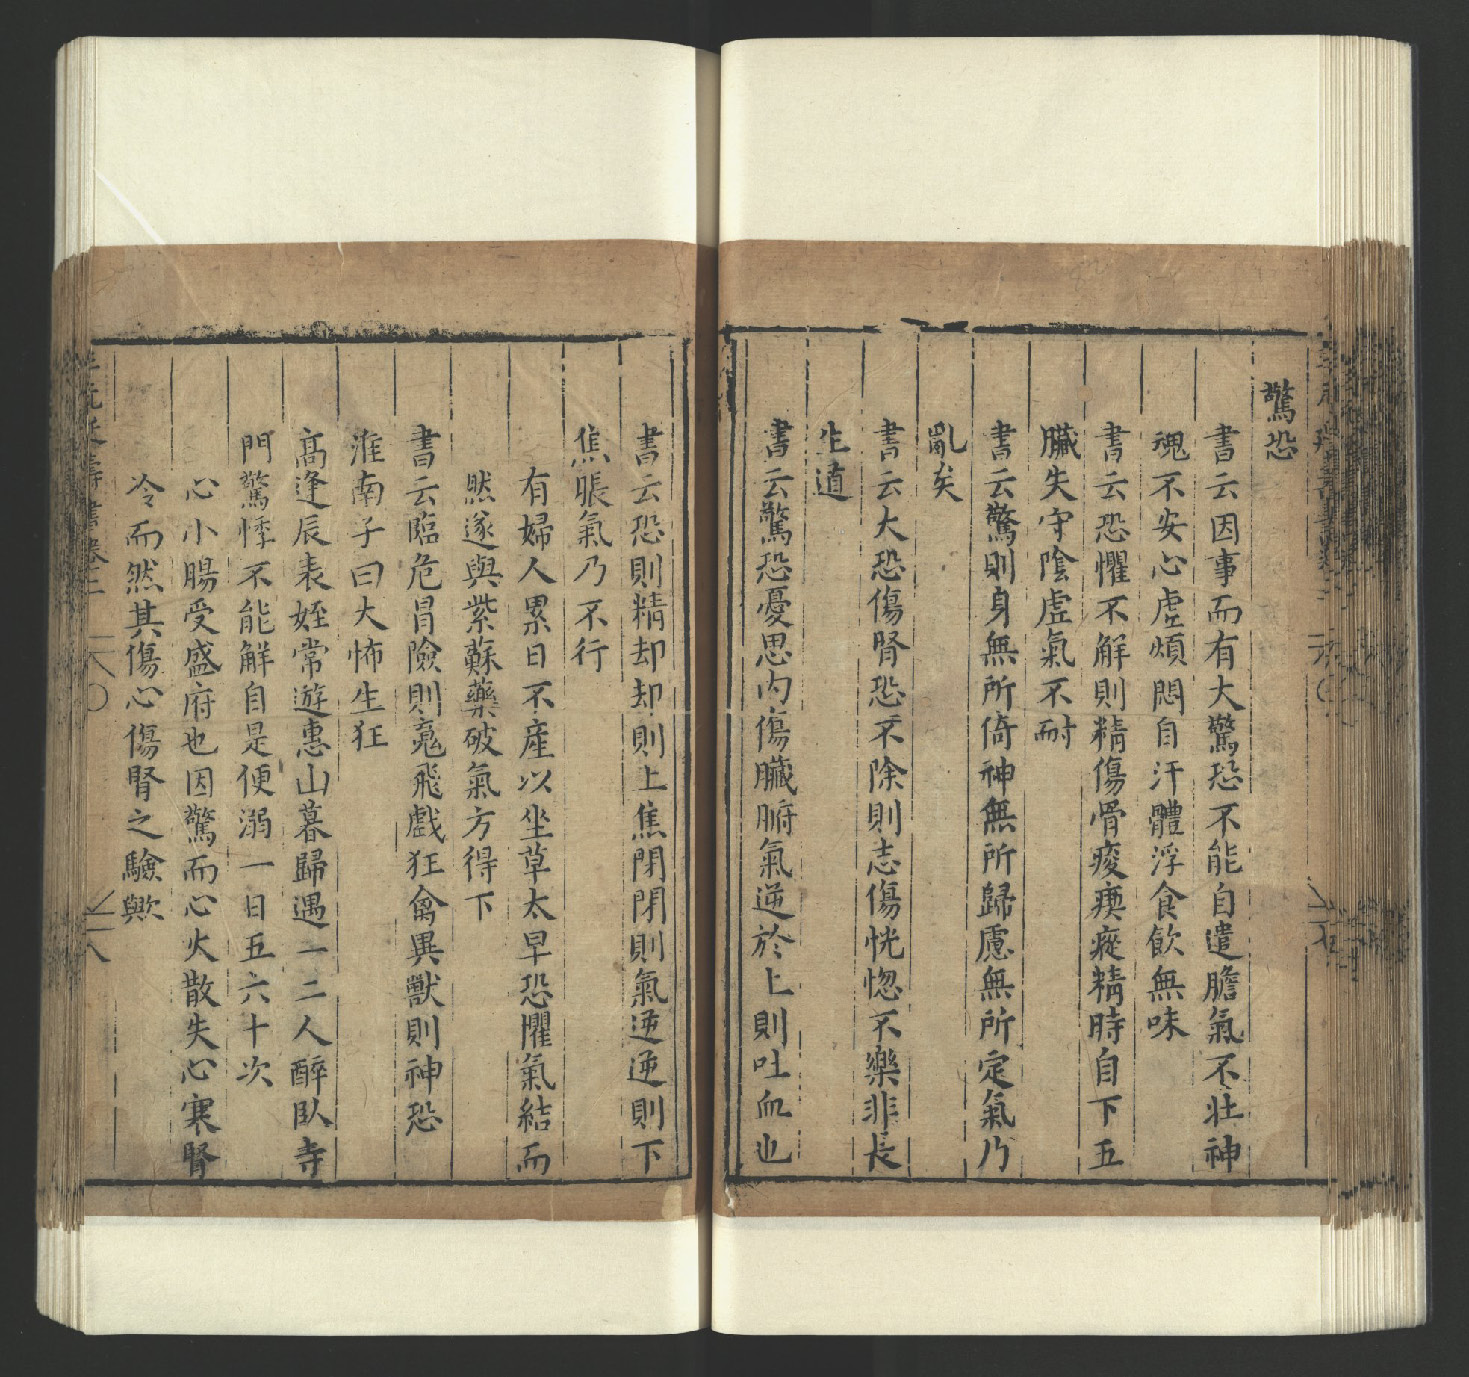 驚恐
書云因事而有大驚恐不能自遣膽氣不壯神
魂不安心虛煩悶自汗體浮食飲無味
書云恐懼不解則精傷骨痠㾱瘲精時自下五
臟失守陰虛氣不耐
書云驚則身無所倚神無所歸慮無所定氣乃
亂矣
書云大恐傷腎恐不除則志傷恍惚不樂非長
生道
書云驚恐憂思內傷臟腑氣逆於上則吐血也
書云恐則精却却則上焦閉閉則氣逆逆則下
焦脹氣乃不行
有婦人累日不產以坐草太早恐懼氣結而
然遂與紫蘇藥破氣方得下
書云臨危冒險則䰟飛戲狂禽異獸則神恐
淮南子曰大怖生狂
高逢辰表姪常遊惠山暮歸遇一二人醉臥寺
門驚悸不能解自是便溺一日五六十次
心小腸受盛府也因驚而心火散失心寒腎
冷而然其傷心傷腎之驗歟